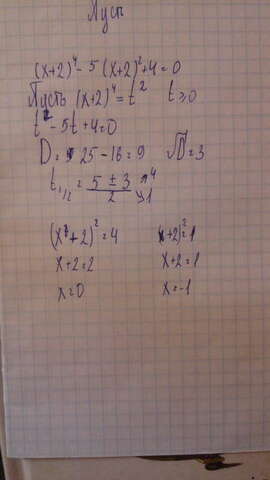 Пусть
(x+2)⁴ - 5 (x+2)² + 4 = 0
Пусть (x+2)⁴ = t² t ≥ 0
t² - 5t + 4 = 0
D = 25 - 16 = 9 √D = 3
t₁,₂ = (5 ± 3)/2 ↗4 ↘1
(x+2)² = 4 (x+2)² = 1
x+2=2 x+2=1
x=0 x=-1